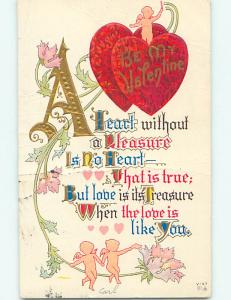 Be My
Valentine
A
Heart without
a Pleasure
Is No Heart—
That is true;
But love is its Treasure
When the love is
like You.